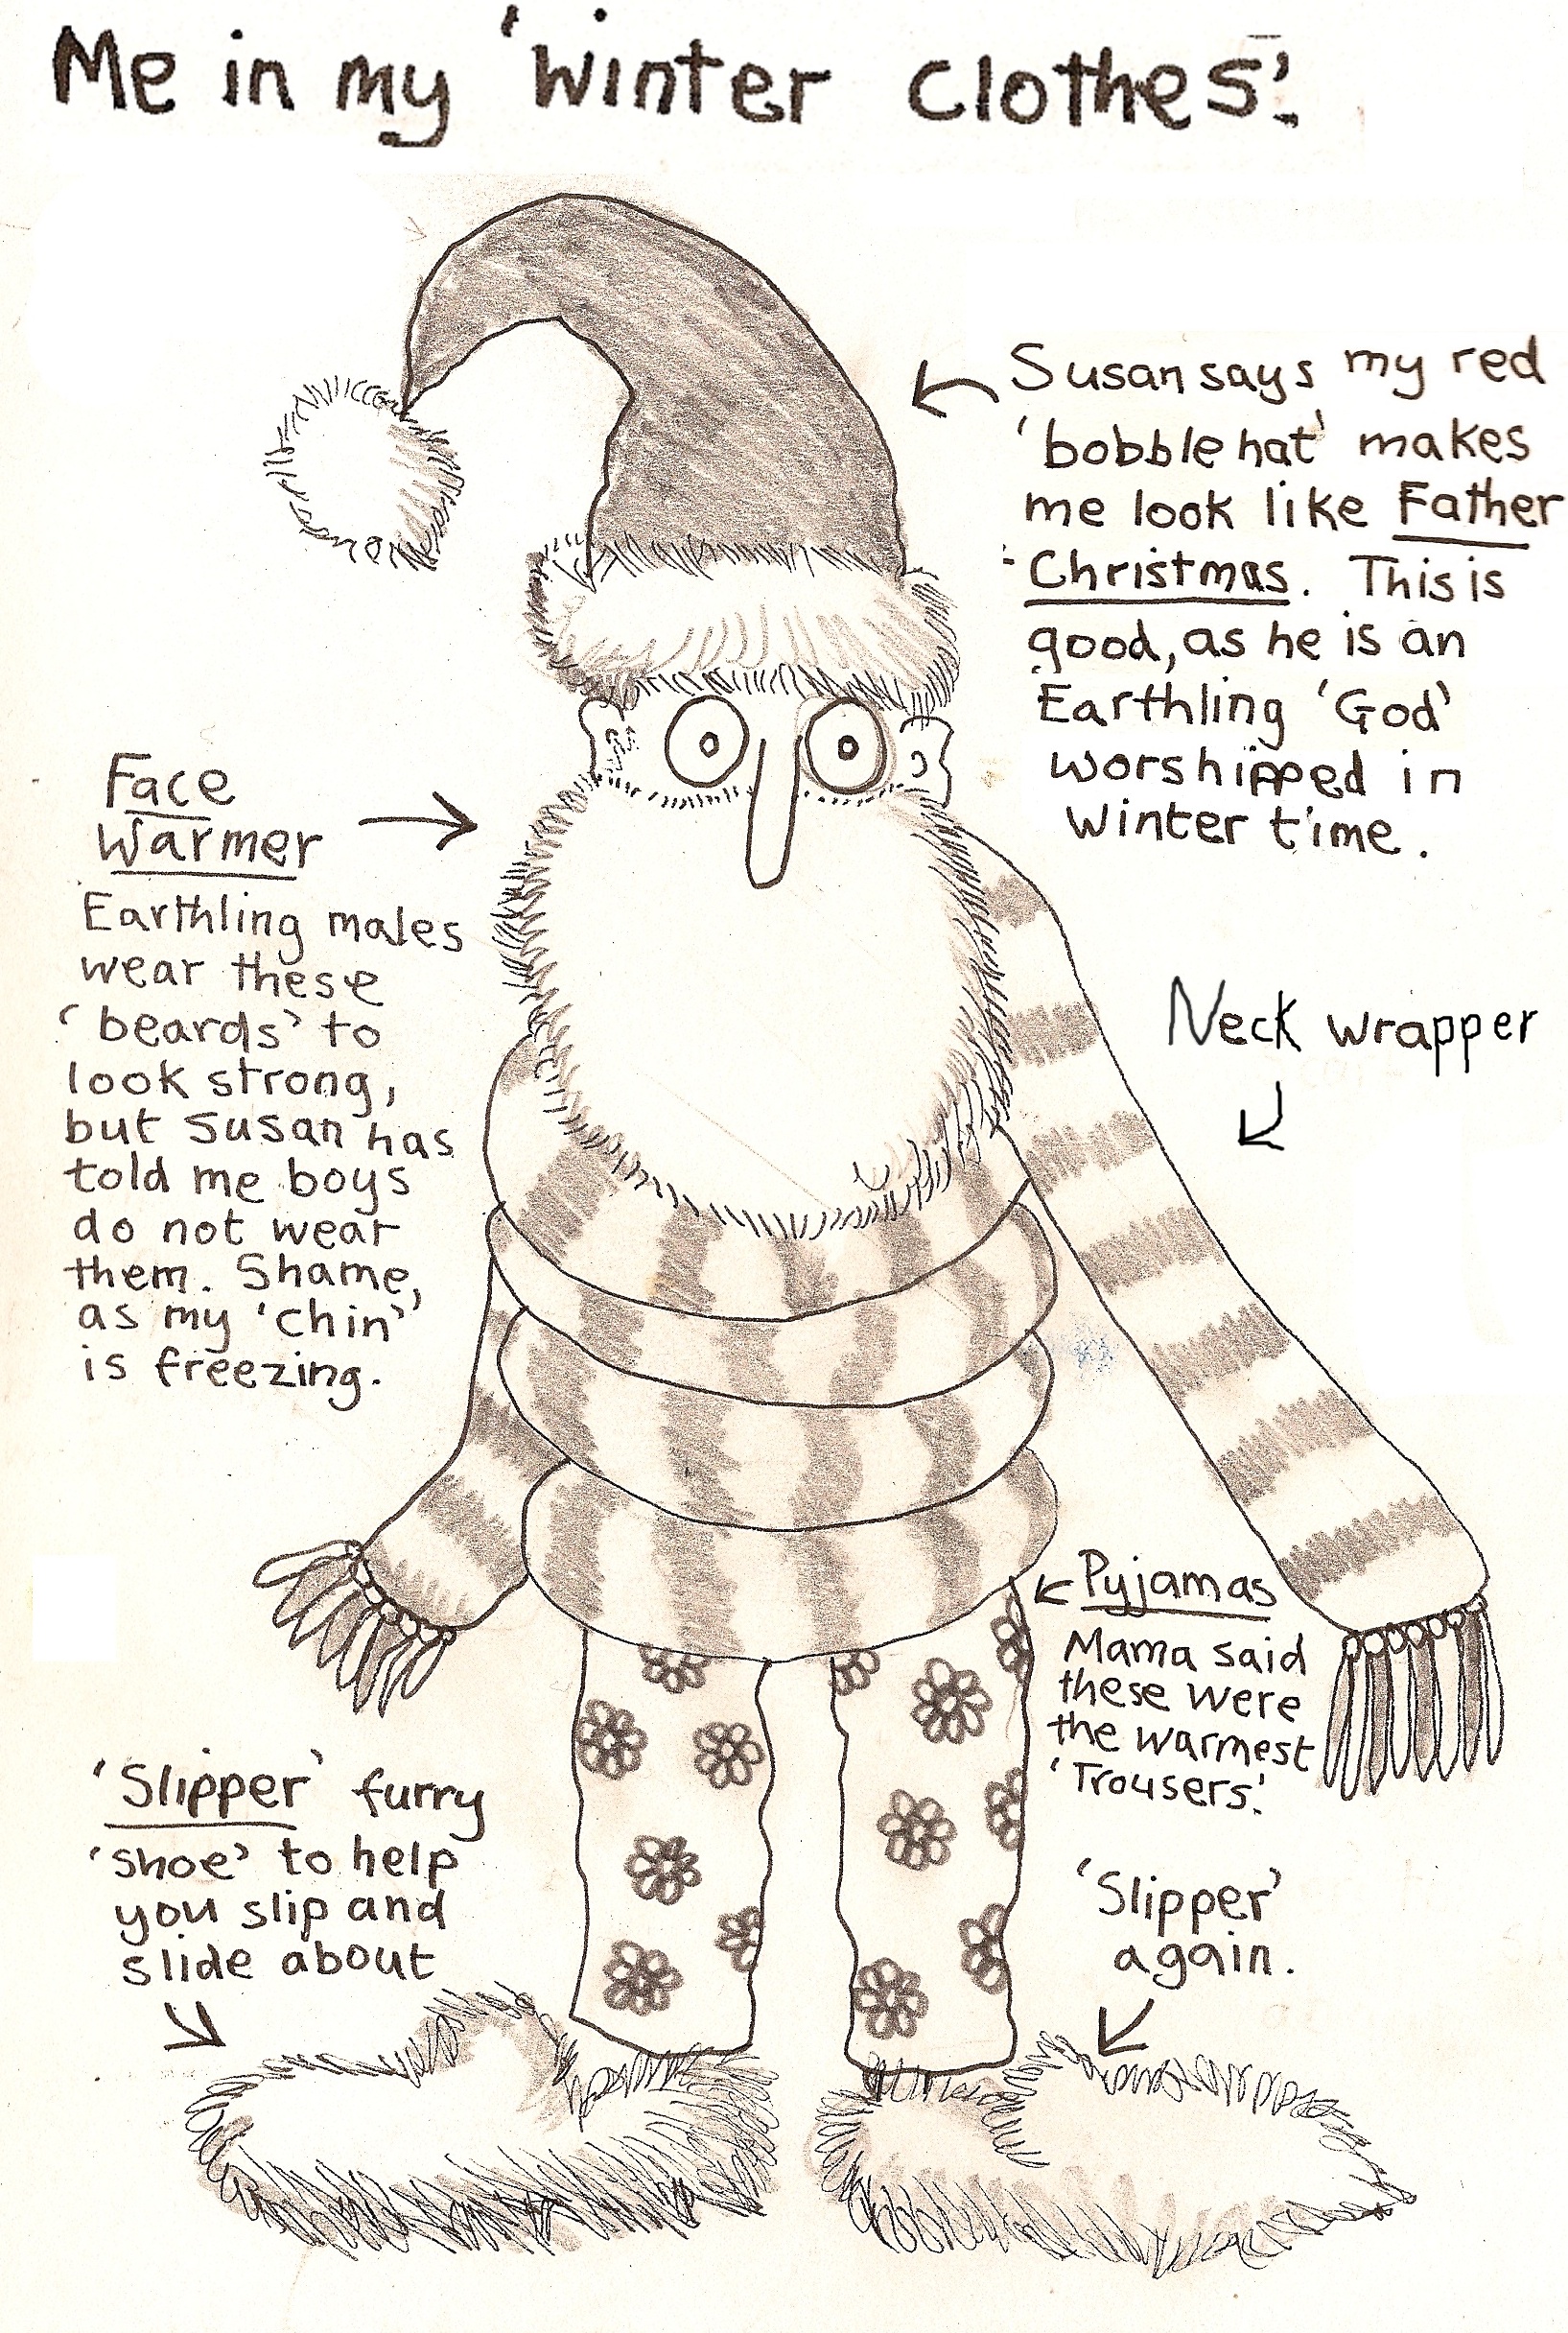 Me in my 'winter clothes'.
Susan says my red
'bobble hat' makes
me look like Father
Christmas. This is
good, as he is an
Earthling 'God'
worshipped in
Winter time.
Face
Warmer
Earthling males
wear these
'beards' to
look strong,
but Susan has
told me boys
do not wear
them. Shame,
as my 'chin'
is freezing.
Neck wrapper
Pyjamas
Mama said
these were
the warmest
'Trousers'.
'Slipper' furry
'shoe' to help
you slip and
slide about
'Slipper'
again.